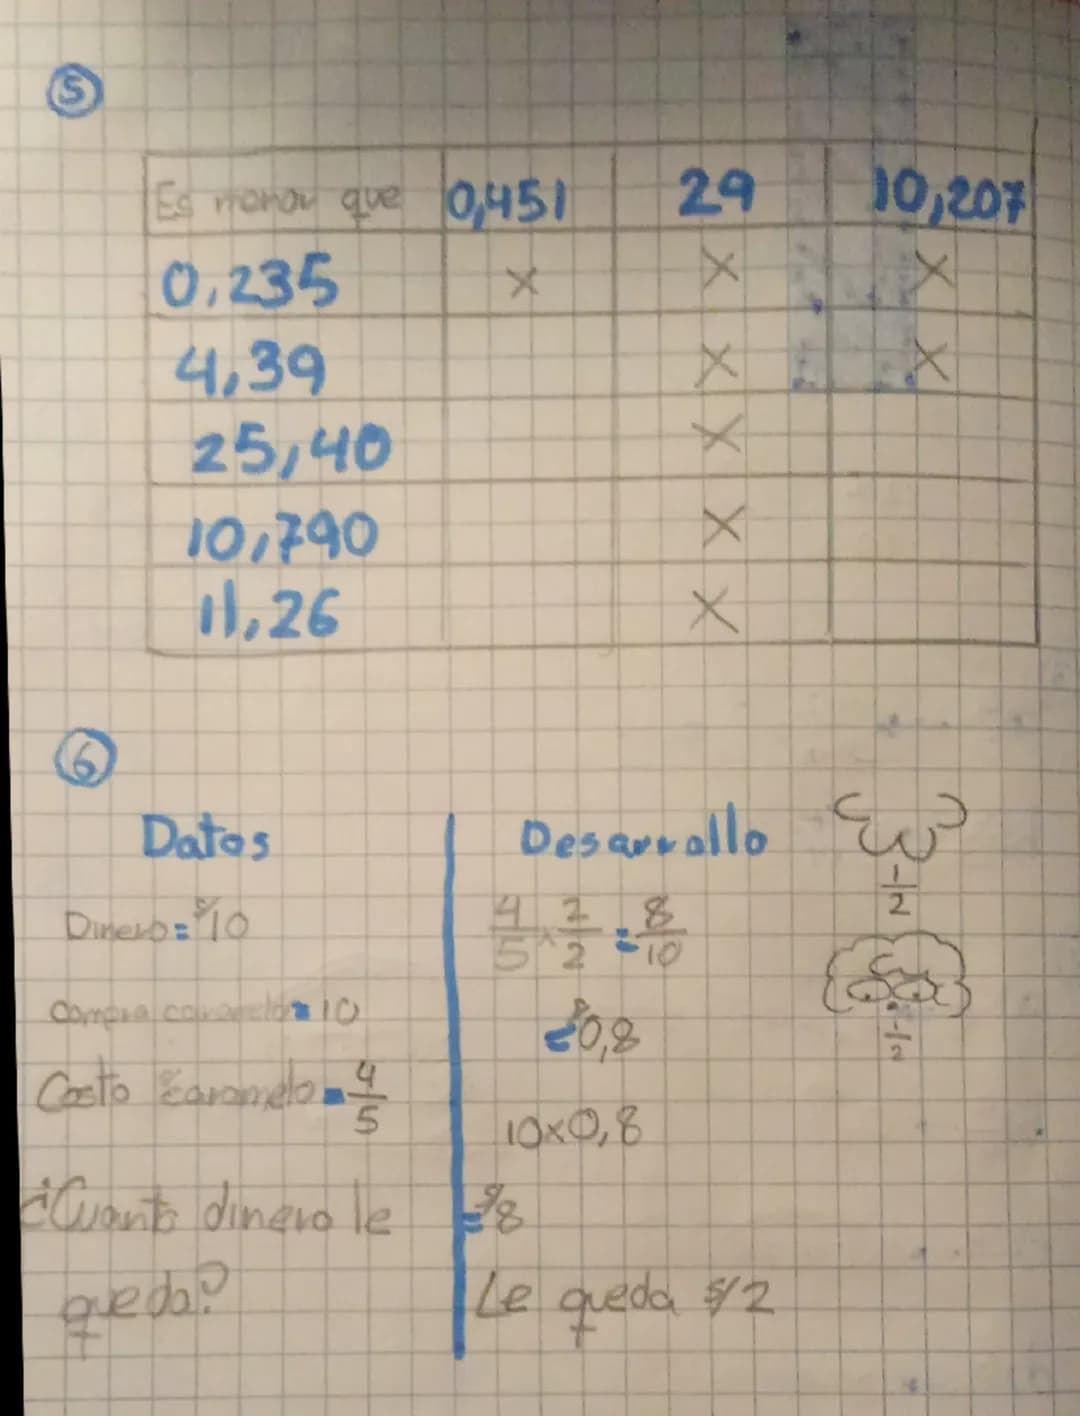 5
Es menor que 0,451 29 10,207
0,235 X X X
4,39 X X
25,40 X
10,790 X
11,26 X
6
Datos
Dinero = s/10
compra caramelos = 10
Costo caramelo = 4/5
¿Cuanto dinero le
queda?
Desarrollo
4/5 x 2/2 = 8/10
= s/0,8
10x0,8
= s/8
Le queda s/2
1/2
1/2